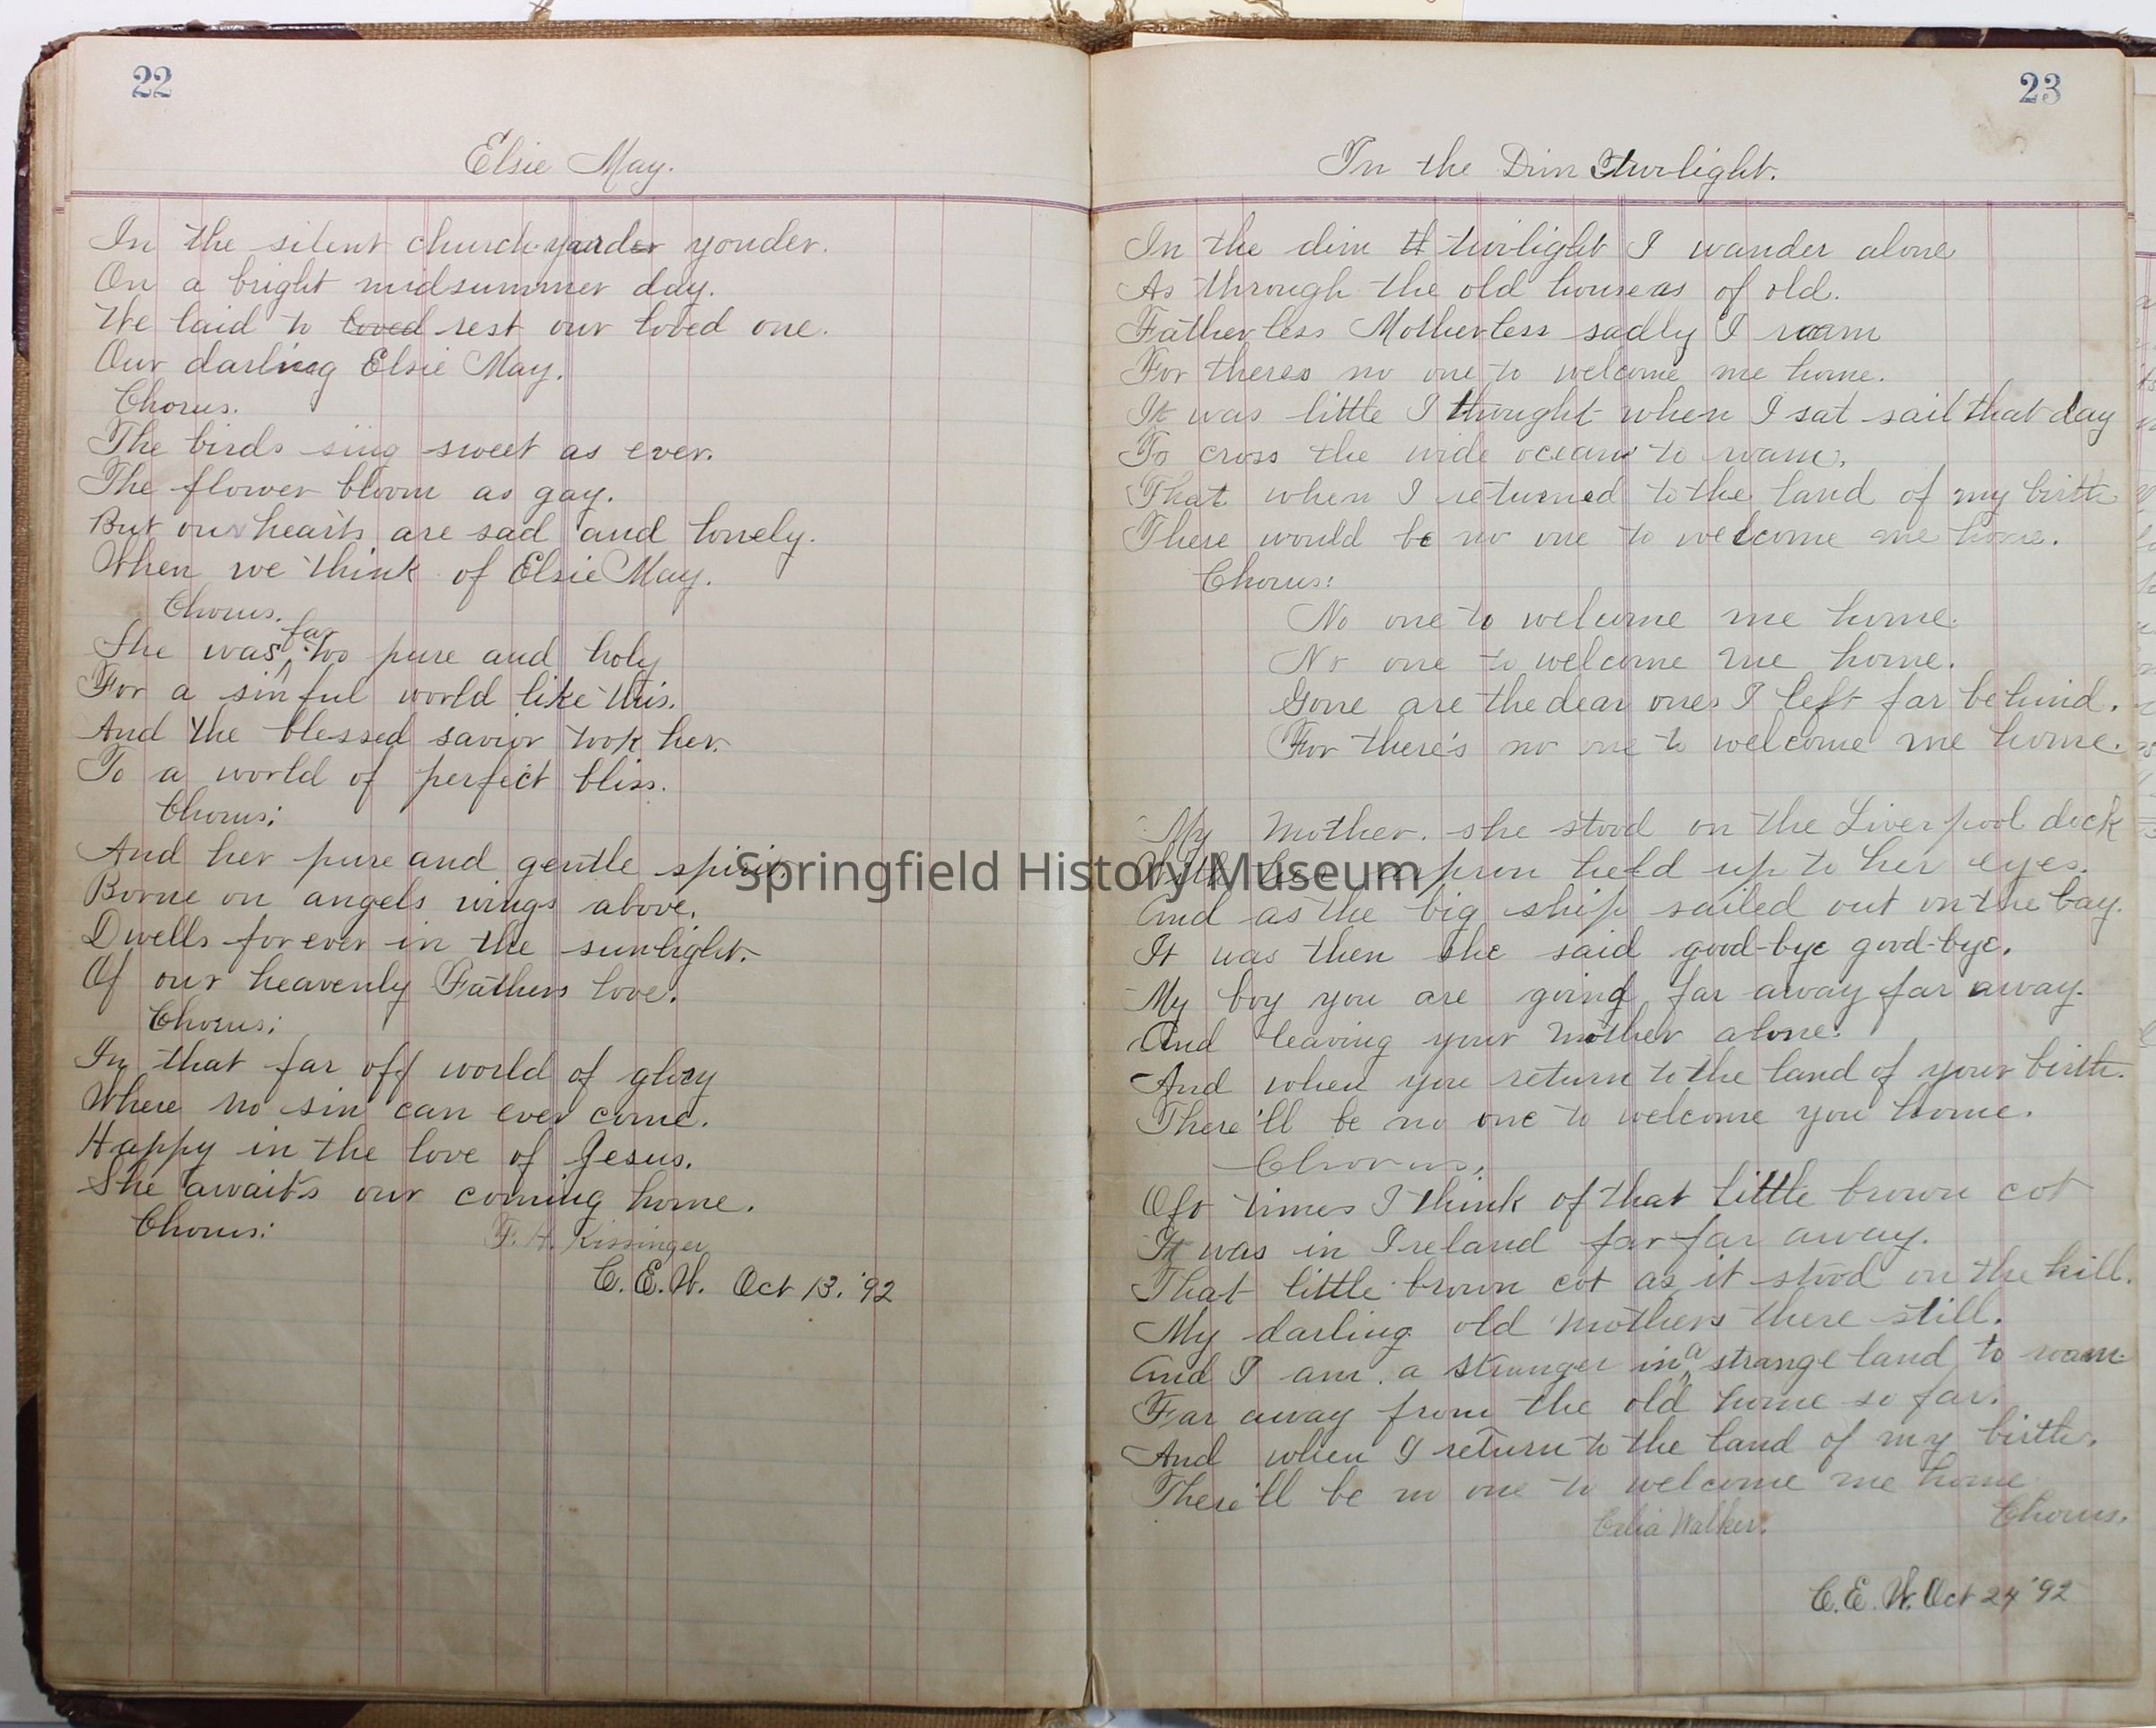 22
Elsie May.
In the silent church yarder yonder.
On a bright midsummer day.
We laid to loved rest our loved one.
Our darling Elsie May.
Chorus.
The birds sing sweet as ever.
The flower bloom as gay.
But our hearts are sad and lonely.
When we think of Elsie May.
Chorus.
far
She was too pure and holy
For a sinful world like this.
And the blessed savior took her.
To a world of perfect bliss.
Chorus;
And her pure and gentle spirit.
Borne on angels wings above.
Dwells forever in the sunlight.
Of our heavenly Fathers love.
Chorus;
In that far off world of glory
Where no sin can ever come.
Happy in the love of Jesus.
She awaits our coming home.
Chorus:
F. H. Kissinger
C. E. W. Oct 13. '92
23
In the Dim Twilight.
In the dim tt twilight I wander alone
As through the old houseas of old.
Fatherless Motherless sadly I roam
For theres no one to welcome me home.
It was little I thought when I sat sail that day
To cross the wide ocean to roam.
That when I returned to the land of my birth
There would be no one to welcome me home.
Chorus:
No one to welcome me home.
No one to welcome me home.
Gone are the dear ones I left far behind.
For there's no one to welcome me home.
My mother. she stood on the Liverpool dock
With her apron held up to her eyes.
And as the big ship sailed out on the bay.
It was then she said good-bye good-bye.
My boy you are going far away far away.
And leaving your mother alone.
And when you return to the land of your birth.
There'll be no one to welcome you home.
Chorus,
Oft times I think of that little brown cot
It was in Ireland far far away.
That little brown cot as it stood on the hill.
My darling old mothers there still.
And I am a stranger in a strange land to roam
Far away from the old home so far.
And when I return to the land of my birth.
There'll be no one to welcome me home
Chorus.
Celia Walker.
C. E. W. Oct 24 '92
Springfield History Museum